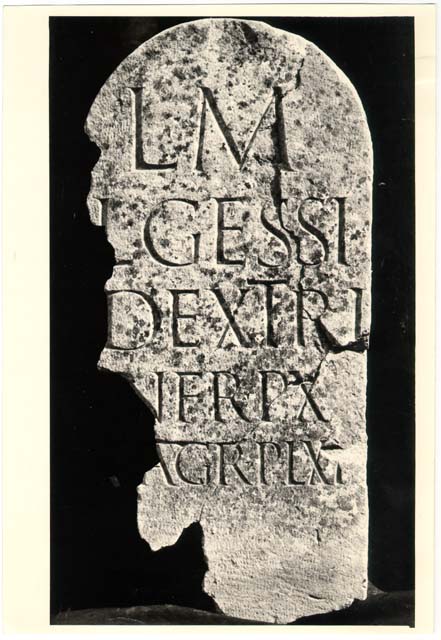 L M
L GESSI
DEXTRI
IN FR P X
AGR P LXI